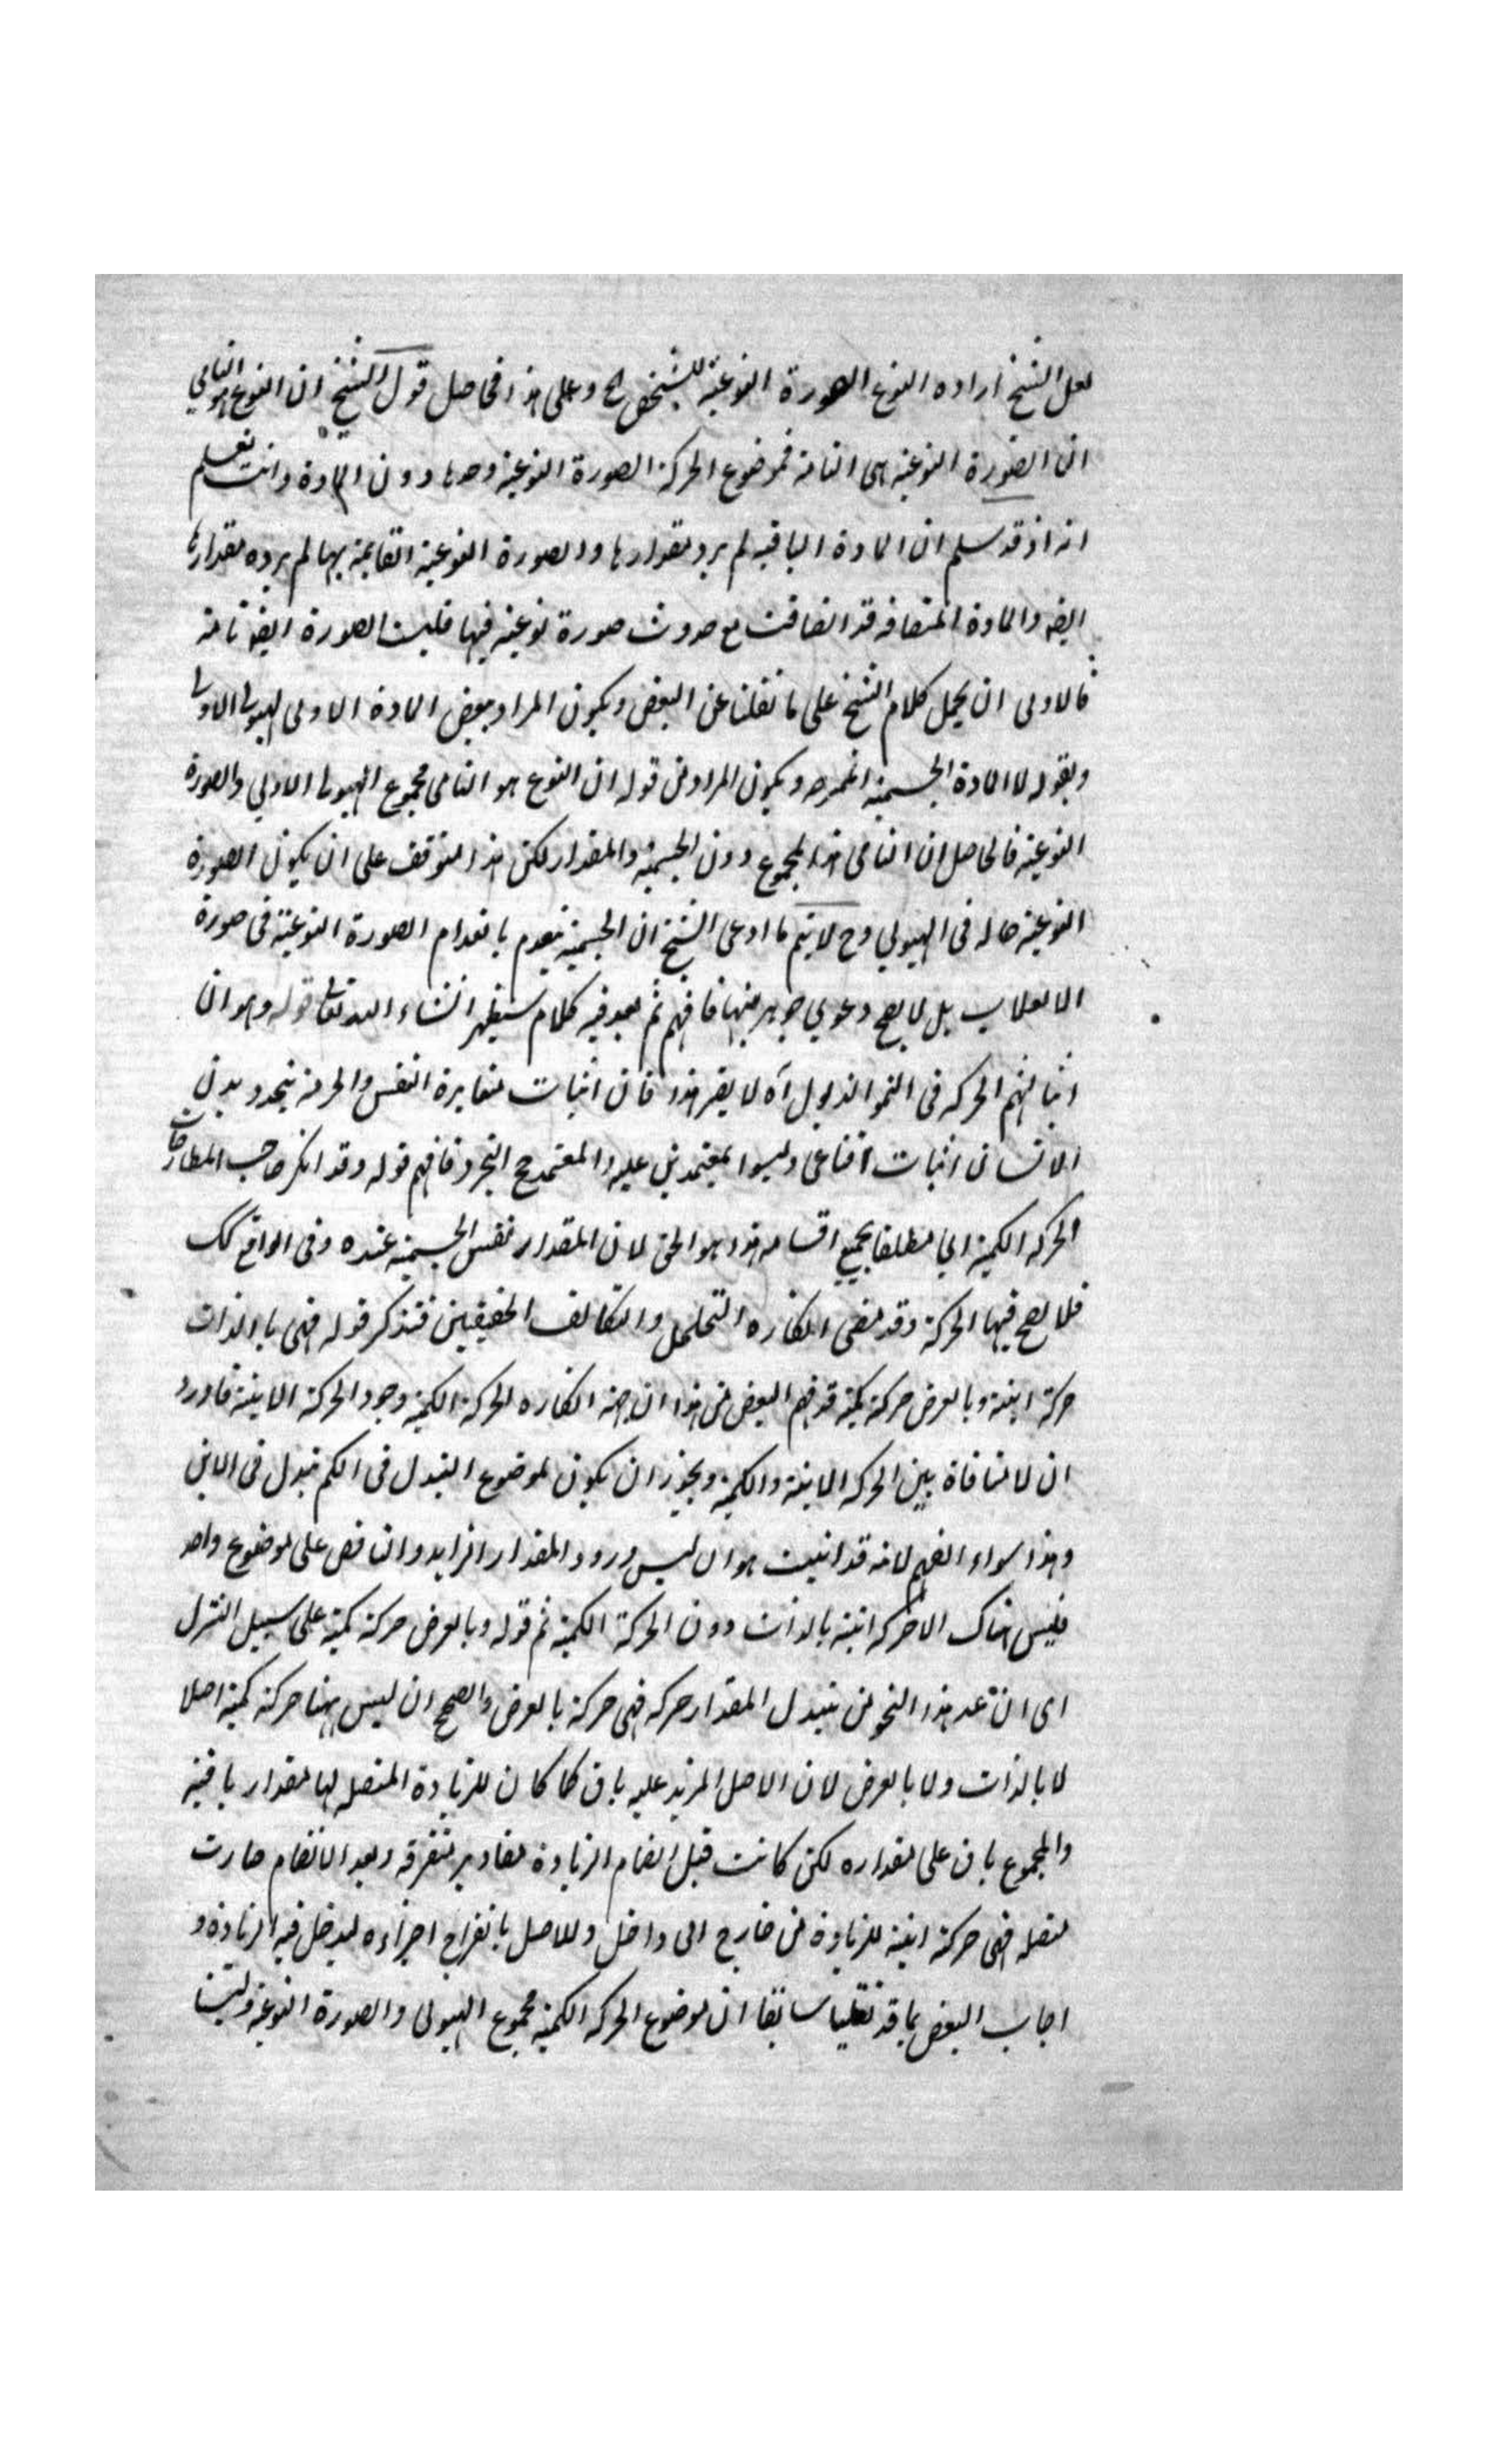 لعل الشيخ اراده النوع الصورة النوعية للشخص الخ وعلى هذا فحاصل قول الشيخ ان النوع هو النامي
ان الصورة النوعية هى النامية فموضوع الحركة الصورة النوعية وحدها دون المادة وانت تعلم
انه اذ قد سلم ان المادة الباقيه لم يزد مقدارها والصورة النوعية القايمة بها لم يزده مقدارها
ايضه والمادة المنضافه قد انضافت مع حدوث صورة نوعية فيها فليست الصورة ايضه نامية
فالاولى ان يحمل كلام الشيخ على ما نقلنا عن البعض ويكون المراد ببعض المادة الاولى الهيولى الاولى
وبقوله لا المادة الجسمية ويكون المراد من قوله ان النوع هو النامى مجموع الهيولى الاولي والصورة
النوعية فالحاصل ان النامى هذا المجموع دون الجسمية والمقدار لكن هذا متوقف على ان يكون الصورة
النوعية حاله فى الهيولي وح لا يتم ما ادعى الشيخ ان الجسمية ينعدم بانعدام الصورة النوعية فى صورة
الانقلاب بل لا يصح دعوي جوهريتها فافهم ثم بعد فيه كلام سيظهر انشاء الله تعالى قوله وهو ان
اثباتهم الحركه فى النمو الذبول اه لا يضر هذا فان اثبات مغايرة النفس والحرمة بتجدد بدن
الانسان اثبات اقناعى وليسوا بمعتمدين عليه والمعتمد حج التجرد فافهم قوله وقد انكر صاحب المطارحات
الحركه الكمية اي مطلقا بجميع اقسامه هذا هو الحق لان المقدار نفس الجسمية عنده وفى الواقع كك
فلا يصح فيها الحركة وقد مضى انكاره التخلخل والتكاثف الحقيقيين فتذكر قوله فهى بالذات
حركة اينية وبالعرض حركة كمية قد فهم البعض من هذا ان جهة انكاره الحركة الكمية وجود الحركة الاينية فاورد
ان لا منافاة بين الحركه الاينية والكمية ويجوز ان يكون لموضوع التبدل فى الكم تبدل فى الاين
وهذا سواء الفهم لانه قد اثبت هو ان ليس ورود المقدار الزايد والناقص على موضوع واحد
فليس هناك الا حركه اينية بالذات دون الحركة الكمية ثم قوله وبالعرض حركة كمية على سبيل التنزل
اى ان عد هذا النحو من تبدل المقدار حركه فهى حركة بالعرض والصحيح ان ليس ههنا حركة كمية اصلا
لا بالذات ولا بالعرض لان الاصل المزيد عليه باق كما كان للزيادة المتصله لها مقدار باقية
والمجموع باق على مقداره لكن كانت قبل انضام الزيادة مقادير متفرقه وبعد الانضام صارت
متصله فهى حركة اينية للزيادة من خارج الى داخل وللاصل بانفراج اجزاءه ليدخل فيه الزيادة و
اجاب البعض بما قد نقلنا سابقا ان موضوع الحركه الكمية مجموع الهيولى والصورة النوعية وليتنا